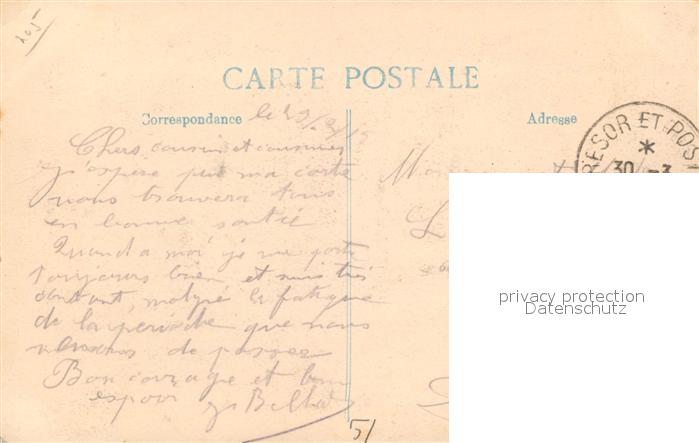 205
CARTE POSTALE
Correspondance
Adresse
le 29/3/15
TRESOR ET POST
*
30 -3
Chers cousin et cousines
j'espere que ma carte
vous trouvera tous
en bonne santé
Quand a moi je me porte
toujours bien et suis très
content, malgré la fatigue
de la periode que nous
venons de passer
Bon courage et bon
espoir
Mon
L
privacy protection
Datenschutz
51